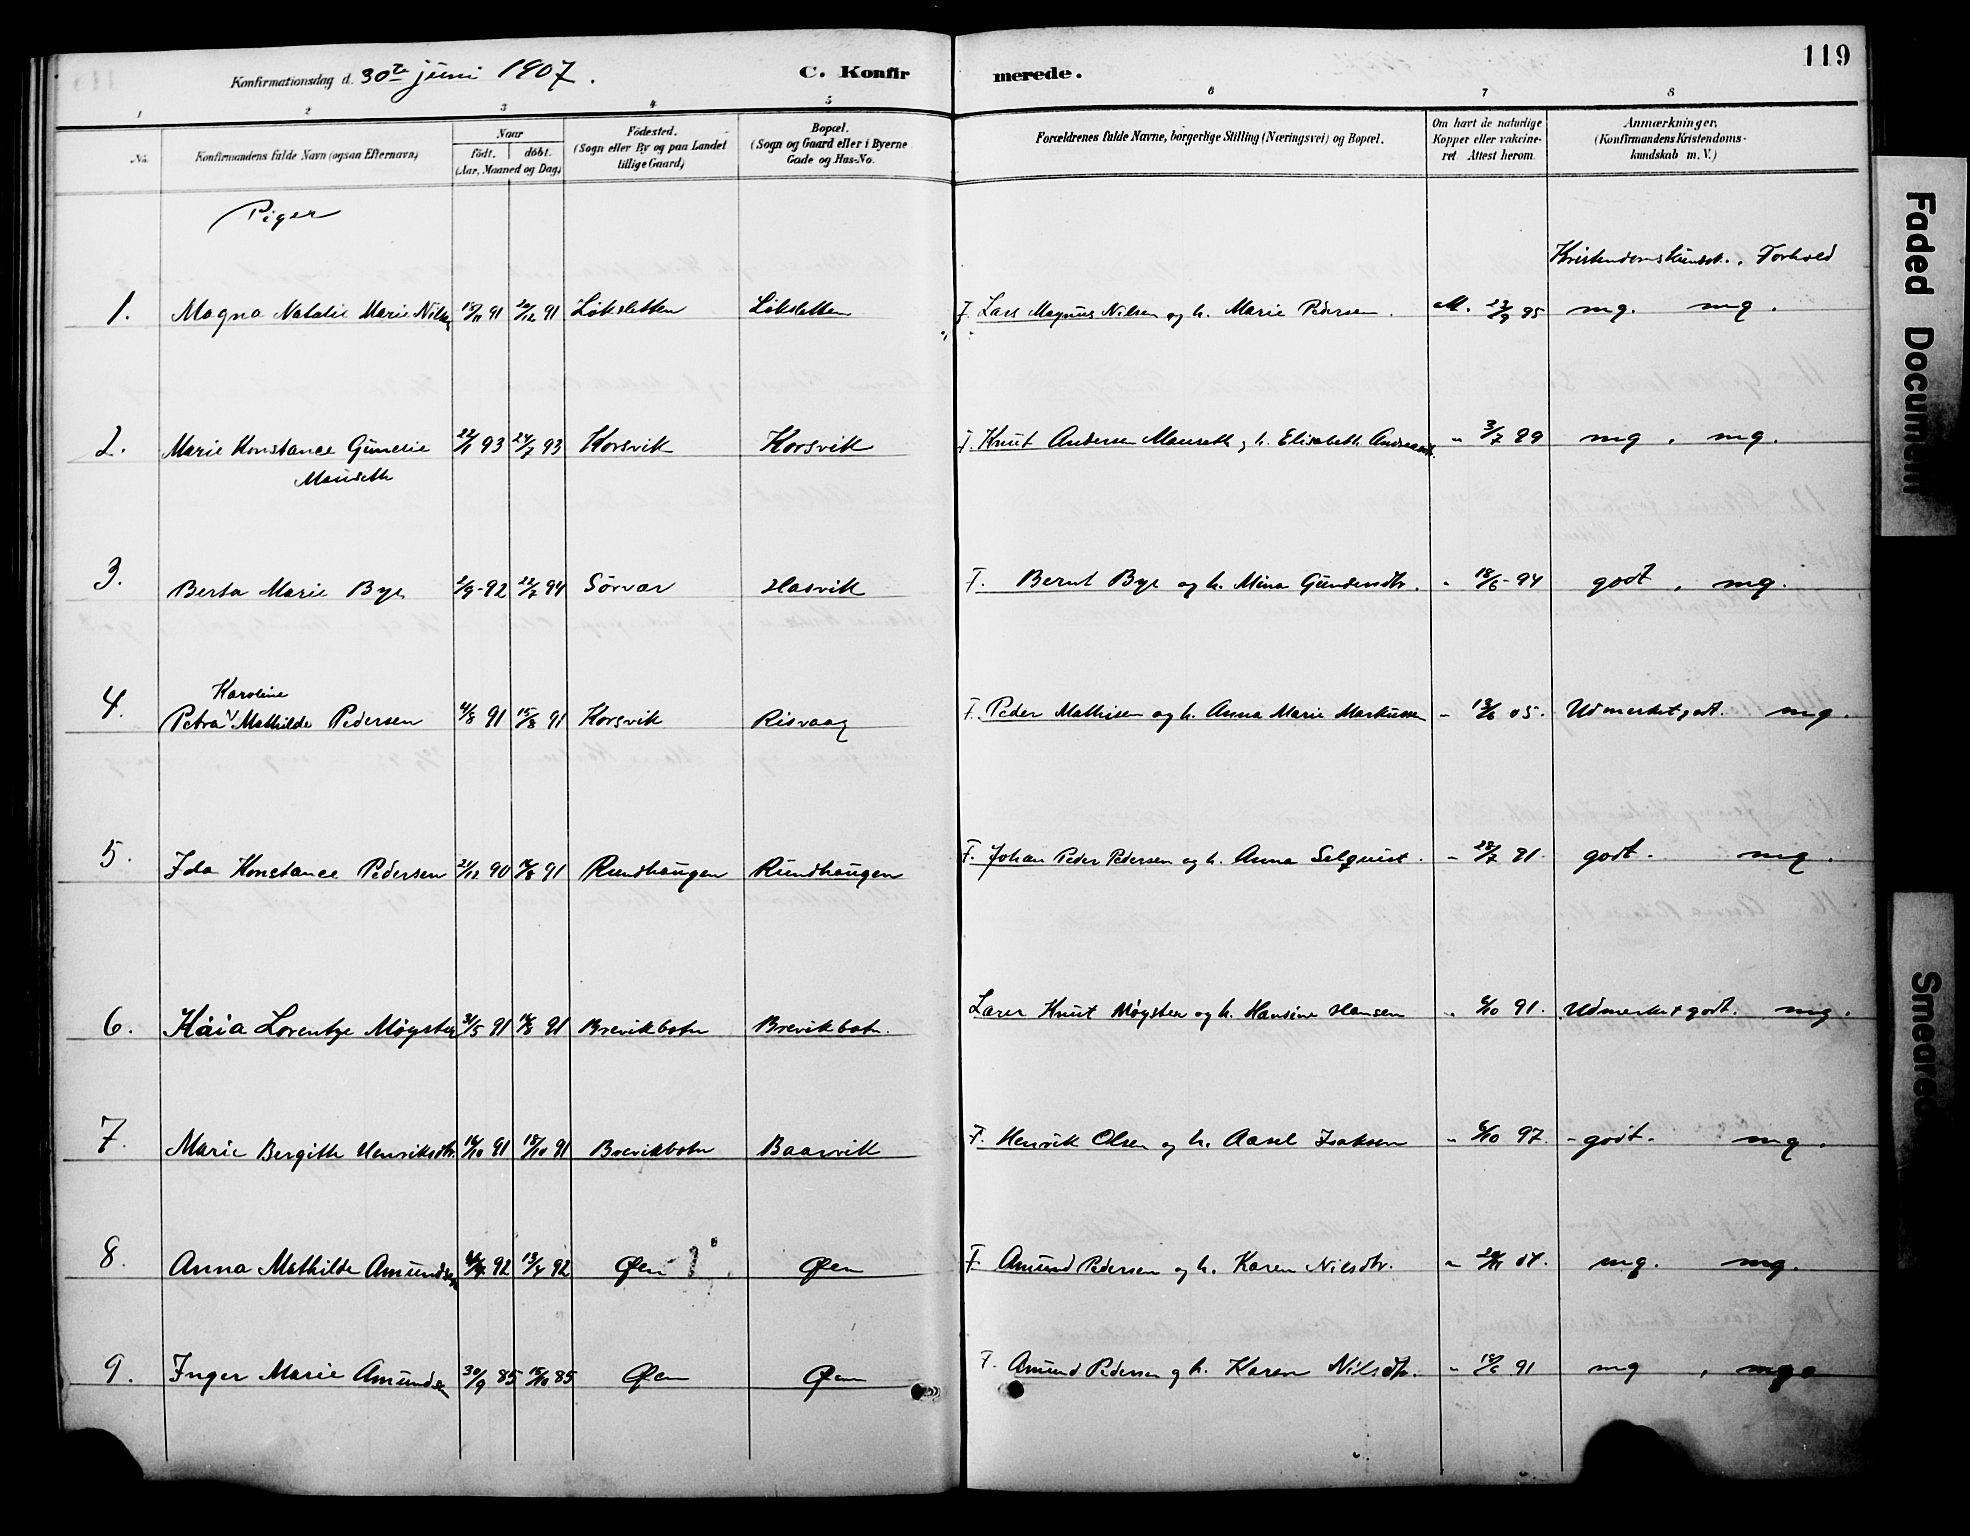 119
Konfirmationsdag d. 30te juni 1907.
C. Konfirmerede.
1 2 3 4 5 6 7 8
No. Konfirmandens fulde Navn (ogsaa Efternavn) Naar født. døbt. (Aar, Maaned og Dag) Fødested. (Sogn eller By og paa Landet tillige Gaard) Bopæl. (Sogn og Gaard eller i Byerne Gade og Hus-No. Forældrenes fulde Navne, borgerlige Stilling (Næringsvei) og Bopæl. Om havt de naturlige Kopper eller vakcineret. Attest herom. Anmærkninger, (Konfirmandens Kristendomskundskab m. V.)
Piger
Kristendomskundsk., Forhold
1. Magna Natalie Marie Nilsen 91 91 Løksletten Løksletten F. Lars Magnus Nilsen og h. Marie Pedersen. 23/9 95 mg. mg.
2. Marie Konstance Gunelie Mauseth 93 24/7 93 Korsvik Korsvik F. Knut Andersen Mauseth og h. Elisabeth " 3/7 99 mg, mg.
3. Berta Marie Bye 2/9-92 22/7 94 Sørvær Hasvik F. Bernt Bye og h. Mina " 18/6-94 godt, mg.
4. Petra Karoline Mathilde Pedersen 4/8 91 15/8 91 Korsvik Risvaag F. Peder Mathisen og h. Anna Marie Markussen " 05. Udmerket godt. mg.
5. Ida Konstance Pedersen 21/12 90 91 Rundhaugen Rundhaugen F. Johan Peder Pedersen og h. Anna Selquist. " 28/7 91. godt. mg.
6. Kaia Lorentze Møyster 31/5 91 91 Brevikbotn Brevikbotn. Lærer Knut Møyster og h. Hansine Hansen " 91. Udmerket godt. mg.
7. Marie Bergithe Henriksdtr. 91 18/10 91 Brevikbotn Baarvik F. Henrik Olsen og h. Aasel Isaksen " 97. godt. mg.
8. Anna Mathilde Amundsen 92 92 Øen Øen F. Amund Pedersen og h. Karen Nilsdtr. " mg. mg.
9. Inger Marie Amundsen 30/9 85 15/10 85 Øen Øen F. Amund Pedersen og h. Karen Nilsdtr. " 91 mg, mg.
Faded Document
Smeared